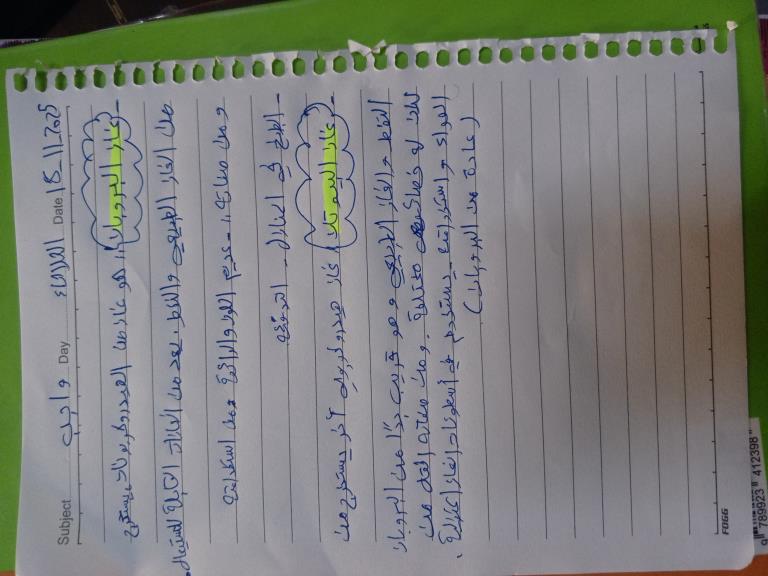 Subject واجب Day الثلاثاء Date 18-11-2025
- (غاز البروبان): هو غاز من الهيدروكربونات يستخرج
من الغاز الطبيعي والنفط، يعد من الغازات القابلة للاشتعال.
ومن صفاته: - عديم اللون والرائحة ومن استخداماته
- الطبخ في المنازل - التدفئة
- (غاز البيوتان) غاز هيدروكربوني آخر يستخرج من
النفط والغاز الطبيعي وهو قريب جدًا من البروبان
لكن له خصائص مختلفة. ومن صفاته أثقل من
الهواء و يستخدم في أسطوانات الغاز المنزلية.
(عادة مع البروبان)
FOGG
9 789923 412398